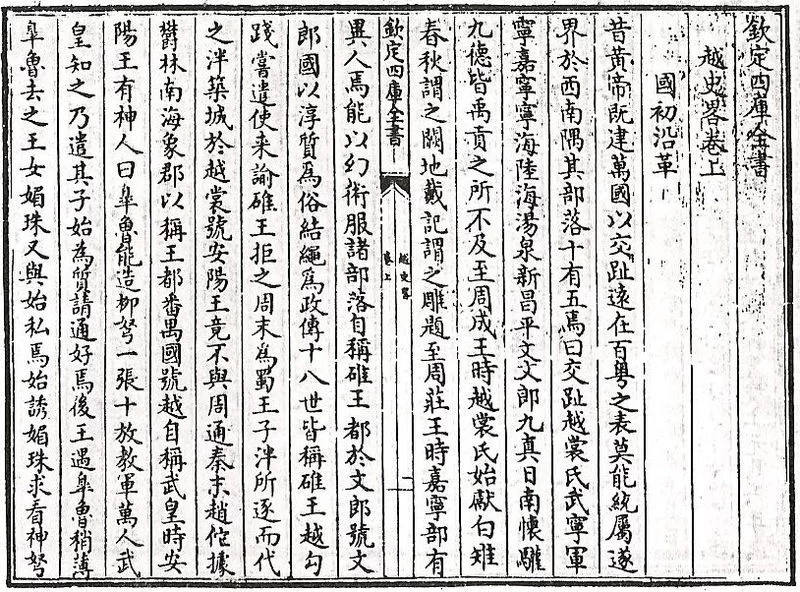 欽定四庫全書
越史畧卷上
國初沿革
昔黄帝既建萬國以交趾遠在百粤之表莫能統屬遂
界於西南隅其部落十有五焉曰交趾越裳氏武寧軍
寧嘉寧寧海陸海湯泉新昌平文文郎九真日南懷驩
九德皆禹貢之所不及至周成王時越裳氏始獻白雉
春秋謂之闕地戴記謂之雕題至周莊王時嘉寧部有
欽定四庫全書
越史畧
卷上
一
異人焉能以幻術服諸部落自稱碓王都於文郎號文
郎國以淳質爲俗結繩爲政傳十八世皆稱碓王越勾
踐嘗遣使来諭碓王拒之周末爲蜀王子泮所逐而代
之泮築城於越裳號安陽王竟不與周通秦末趙佗據
欝林南海象郡以稱王都番禺國號越自稱武皇時安
陽王有神人曰臯魯能造柳弩一張十放教軍萬人武
皇知之乃遣其子始為質請通好焉後王遇臯魯稍薄
臯魯去之王女媚珠又與始私焉始誘媚珠求看神弩